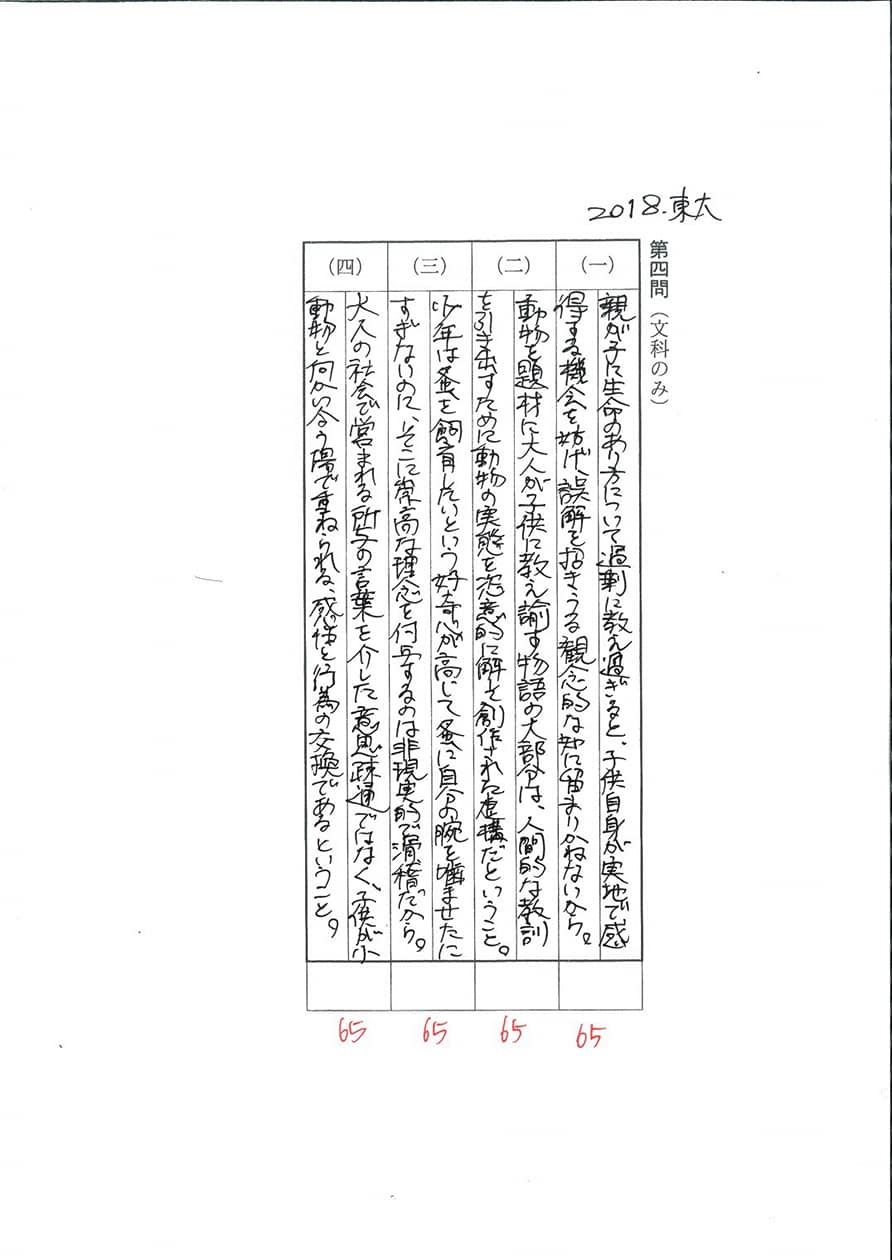 2018.東大
第四問（文科のみ）
（一）
親が子に生命のあり方について過剰に教え過ぎると、子供自身が実地で感
得する機会を妨げ、誤解を招きうる観念的な知に留まりかねないから。
（二）
動物を題材に大人が子供に教え諭す物語の大部分は、人間的な教訓
を引き出すために動物の実態を恣意的に解し創作された虚構だということ。
（三）
少年は蚤を飼育したいという好奇心が高じて蚤に自分の腕を噛ませたに
すぎないのに、そこに崇高な理念を付与するのは非現実的で滑稽だから。
（四）
大人の社会で営まれる所与の言葉を介した意思疎通ではなく、子供が小
動物と向かい合う場で重ねられる、感性と行為の交換であるということ。
65
65
65
65